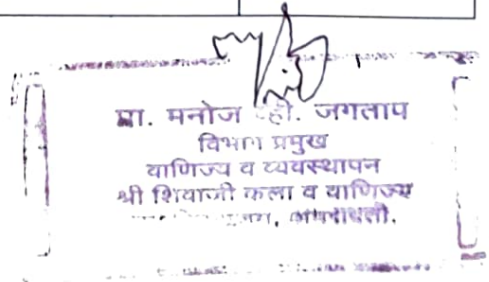 प्रा. मनोज व्ही. जगताप
विभाग प्रमुख
वाणिज्य व व्यवस्थापन
श्री शिवाजी कला व वाणिज्य
अमरावती.